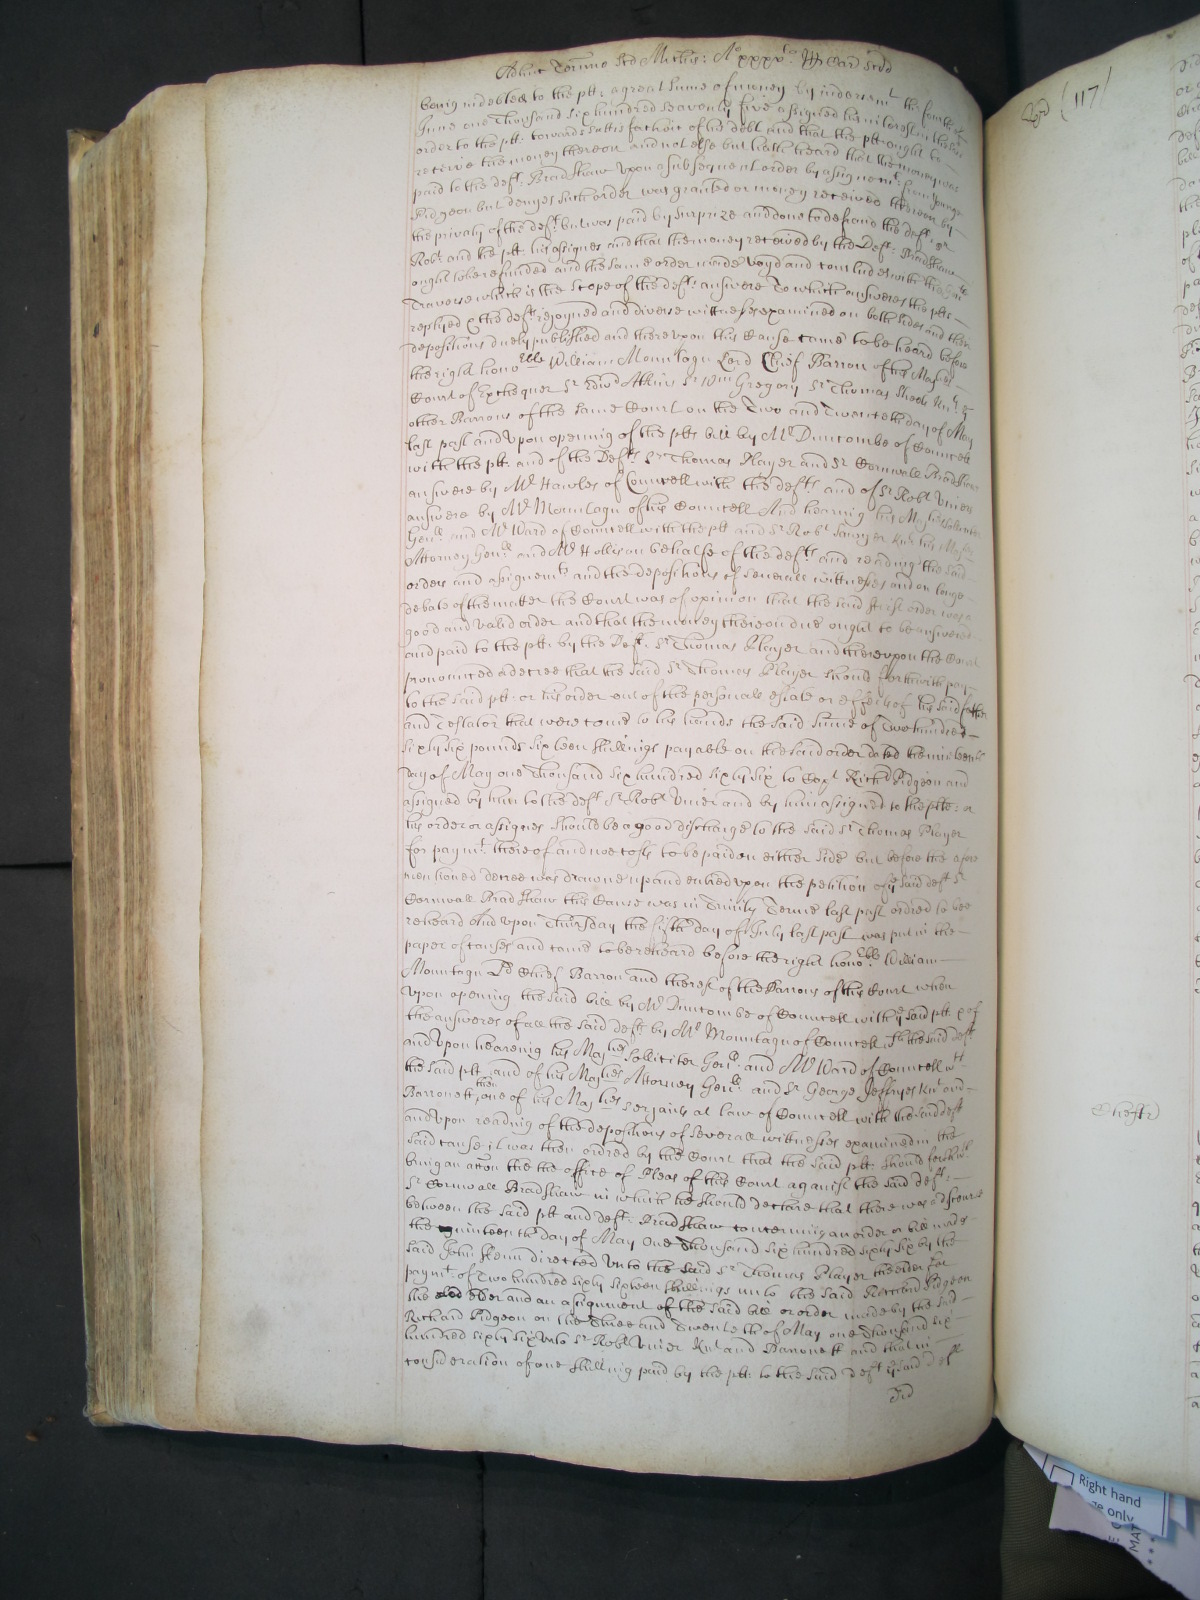 Adhuc Termino Scti Michis: Ao xxxvto. RRis Car Scdi
being indebted to the plt: a great sume of money by indorsemt the fourth of
June one Thousand six hundred seaventy five assigned his interest in the said
order to the plt: towards sattisfaction of his debt and that the plt ought to
receive the money thereon and not else but hath heard that the money was
paid to the deft: Bradshaw upon a subsequent order by assignemt: from younge
Pidgeon but denyes such order was granted or money received thereon by
the privity of the deft: but was paid by surprize and done to defraud the deft: Sr
Robt: and the plt his assignes and that the money received by the Deft: Bradshaw
ought to be refunded and the same order made voyd and concludes with the Gen
Traverse which is the scope of the defts: answere To which answeres the plts
replyed & the defts rejoyned and diverse witnesses examined on both sides and their
depositions duely published and thereupon this Cause came to be heard before
the right honoble William Mountagu Lord Chief Barron of his Majties
Court of Exchequer Sr Edwd Atkins Sr Wm Gregory Sr Thomas Street Knts &
other Barrons of the same Court on the Two and Twentieth day of May
last past and upon opening of the plts bill by Mr Duncombe of Councell
with the plt: and of the Defts Sr Thomas Player and Sr Cornwall Bradshaws
answere by Mr Hawles of Councell with the defts and of Sr Robt Viners
answere by Mr Mountagu of his Councell And hearing his Majties Solicitor
Genll: and Mr Ward of Councell with the plt and Sr Robt Sawyer Knt his Majties
Attorney Genll: and Mr Hollis on behalfe of the defts and reading the said
orders and assignemts and the depositions of severall witnesses and on large
debate of the matter the Court was of opinion that the said first order was a
good and valid order and that the money thereon due ought to be answered
and paid to the plt: by the Deft: Sr Thomas Player and thereupon the Court
pronounced a decree that the said Sr Thomas Player should forthwith pay
to the said plt: or his order out of the personall estate or effects of his said father
and Testator that were come to his hands the said sume of Two hundred
sixty six pounds sixteen shillings payable on the said order dated the nineteenth
day of May one Thousand six hundred sixty six to Capt Richd Pidgeon and
assigned by him to the deft Sr Robt Vnier and by him assigned to the plt: &
his order or assignes should be a good discharge to the said Sr Thomas Player
for paymt: thereof and noe costs to be paid on either side but before the afore
mentioned decree was drawne up and entred upon the petition of ye said deft Sr
Cornwall Bradshaw this Cause was in Trinity Terme last past ordred to bee
reheard And upon Thursday the fifth day of July last past was put in the
paper of causes and came to be reheard before the right honoble William
Mountagu Ld Chief Barron and the rest of the Barrons of this Court when
upon opening the said bill by Mr Duncombe of Councell with ye said plt & of
the answeres of all the said defts by Mr Mountagu of Councell wth the said defts
and upon heareing his Majties Solliciter Genll: and Mr Ward of Councell wth
the said plt and of his Majties Attorney Genll: and Sr George Jeffryes Knt and
Barronett then one of his Majties serjants at law of Councell with the said deft
and upon reading of the depositions of severall witnesses examined in the
said cause it was then ordred by the Court that the said plt: should forthwth
bring an accon the the office of Pleas of this Court against the said deft:
Sr Cornwall Bradshaw in which he should declare that there was a discourse
between the said plt and deft: Bradshaw concerning an order or bill made
the nineteenth day of May one Thousand six hundred sixty six by the
said John Kenn directed unto the said Sr Thomas Player the elder for
paymt: of Two hundred sixty sixteen shillings unto the said Richard Pidgeon
the elder and an assignment of the said bill or order made by the said
Richard Pidgeon on the Three and Twentieth of May one Thousand six
hundred sixty six unto Sr Robt Vnier Knt and Barronett and that in
consideration of one shilling paid by the plt: to the said deft ye said deft
did
(117)
Right hand
only